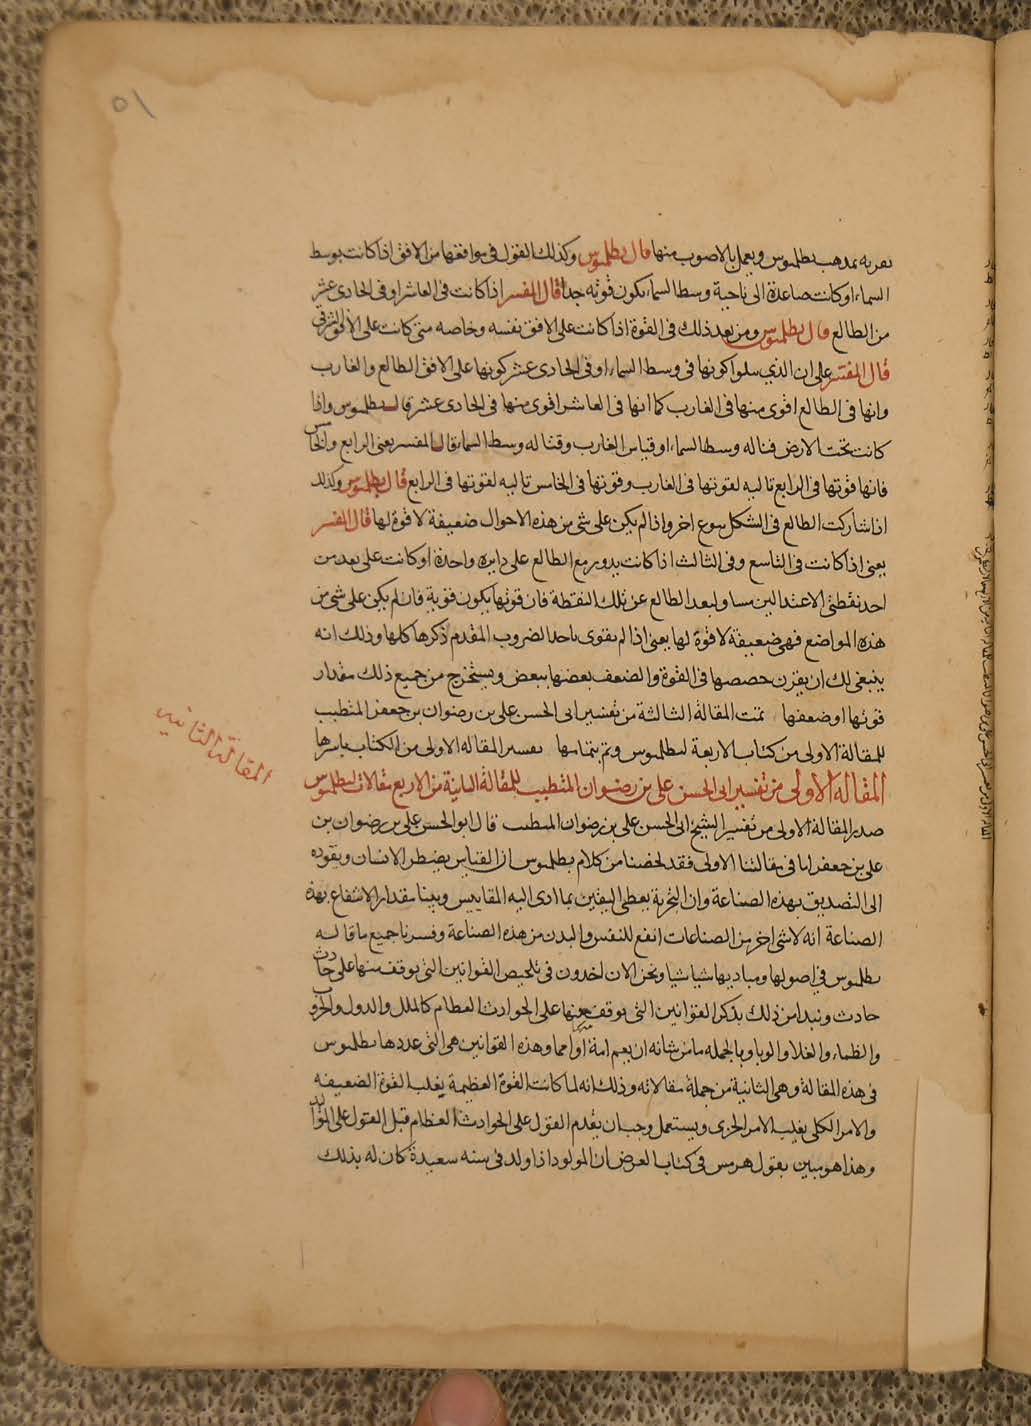 ٥١
نعرفه بمذهب بطلميوس ويعمل بالاصوب منها قال بطلميوس وكذلك القول في مواقعها من الافق اذا كانت بوسط
السماء او كانت صاعدة الى ناحية وسط السماء يكون قوته جدا قال المفسر اذا كانت في العاشر او في الحادى عشر
من الطالع قال بطلميوس ومن بعد ذلك في القوة اذا كانت على الافق نفسه وخاصه متى كانت على الافق الشرقي
قال المفسر على ان الذي سلوا كونها في وسط السماء او في الحادى عشر كونها على الافق الطالع والغارب
وانها في الطالع اقوى منها في الغارب كما انها في العاشر اقوى منها في الحادى عشر قال بطلميوس واذا
كانت تحت الارض قبالة وسط السماء او قياس الغارب وقبالة وسط السماء قال المفسر يعني الرابع والخامس
فانها قوتها في الرابع تاليه لقوتها في الغارب وقوتها في الخامس تاليه لقوتها في الرابع قال بطلميوس وكذلك
اذا شاركت الطالع في الشكل بنوع اخر واذا لم يكن على شي من هذه الاحوال ضعيفة لا قوة لها قال المفسر
يعني اذا كانت في التاسع وفي الثالث اذا كانت يدور مع الطالع على دايره واحدة او كانت على بعد من
احد نقطتي الاعتدالين مساو لبعد الطالع عن تلك النقطة فان قوتها يكون قوية فان لم يكن على شي من
هذه المواضع فهي ضعيفة لا قوة لها يعني اذا لم يقوى باحد الضروب المقدم ذكرها كلها وذلك انه
ينبغي لك ان يقرن حصصها في القوة والضعف بعضها ببعض ويستخرج من جميع ذلك مقدار
قوتها او ضعفها تمت المقالة الثالثة من تفسير ابي الحسن على بن رضوان بن جعفر المتطبب
للمقالة الاولى من كتاب الاربعة لبطلميوس وتم بتمامها تفسير المقاله الاولى من الكتاب باسرها
المقالة الثانيه
المقالة الاولى من تفسير ابي الحسن على بن رضوان المتطبب للمقالة الثانية من الاربع مقالات لبطلميوس
صدر المقالة الاولى من تفسير الشيخ ابي الحسن على بن رضوان المتطبب قال ابو الحسن على بن رضوان بن
على بن جعفر اما في مقالتنا الاولى فقد لخصنا من كلام بطلميوس ان القياس يضطر الانسان ويقوده
الى التصديق بهذه الصناعة وان التجربة يعطى اليقين بما ادى اليه المقاييس وبينا مقدار الانتفاع بهذه
الصناعة انه لا شى اخر من الصناعات انفع للنفس والبدن من هذه الصناعة وفسرنا جميع ما قاله
بطلميوس في اصولها ومباديها شيا شيا ونحن الان اخذون في تلخيص القوانين التي يوقف منها على حادث
حادث ونبدا من ذلك بذكر القوانين التي يوقف منها على الحوادث العظام كالملل والدول والحروب
والظماء والغلا والوبا وبالجمله ما من شانه ان يعم امة او امما وهذه القوانين هي التي عددها بطلميوس
في هذه المقالة وهي الثانية من جملة مقالاته وذلك انه لما كانت القوة العظيمة يغلب القوة الضعيفه
والامر الكلى يغلب الامر الجزى ويستعمل وجب ان يقدم القول على الحوادث العظام قبل القول على المواليد
وهذا هو مبين بقول هرمس في كتاب العرض ان المولود اذا ولد في سنه سعيدة كان له بذلك